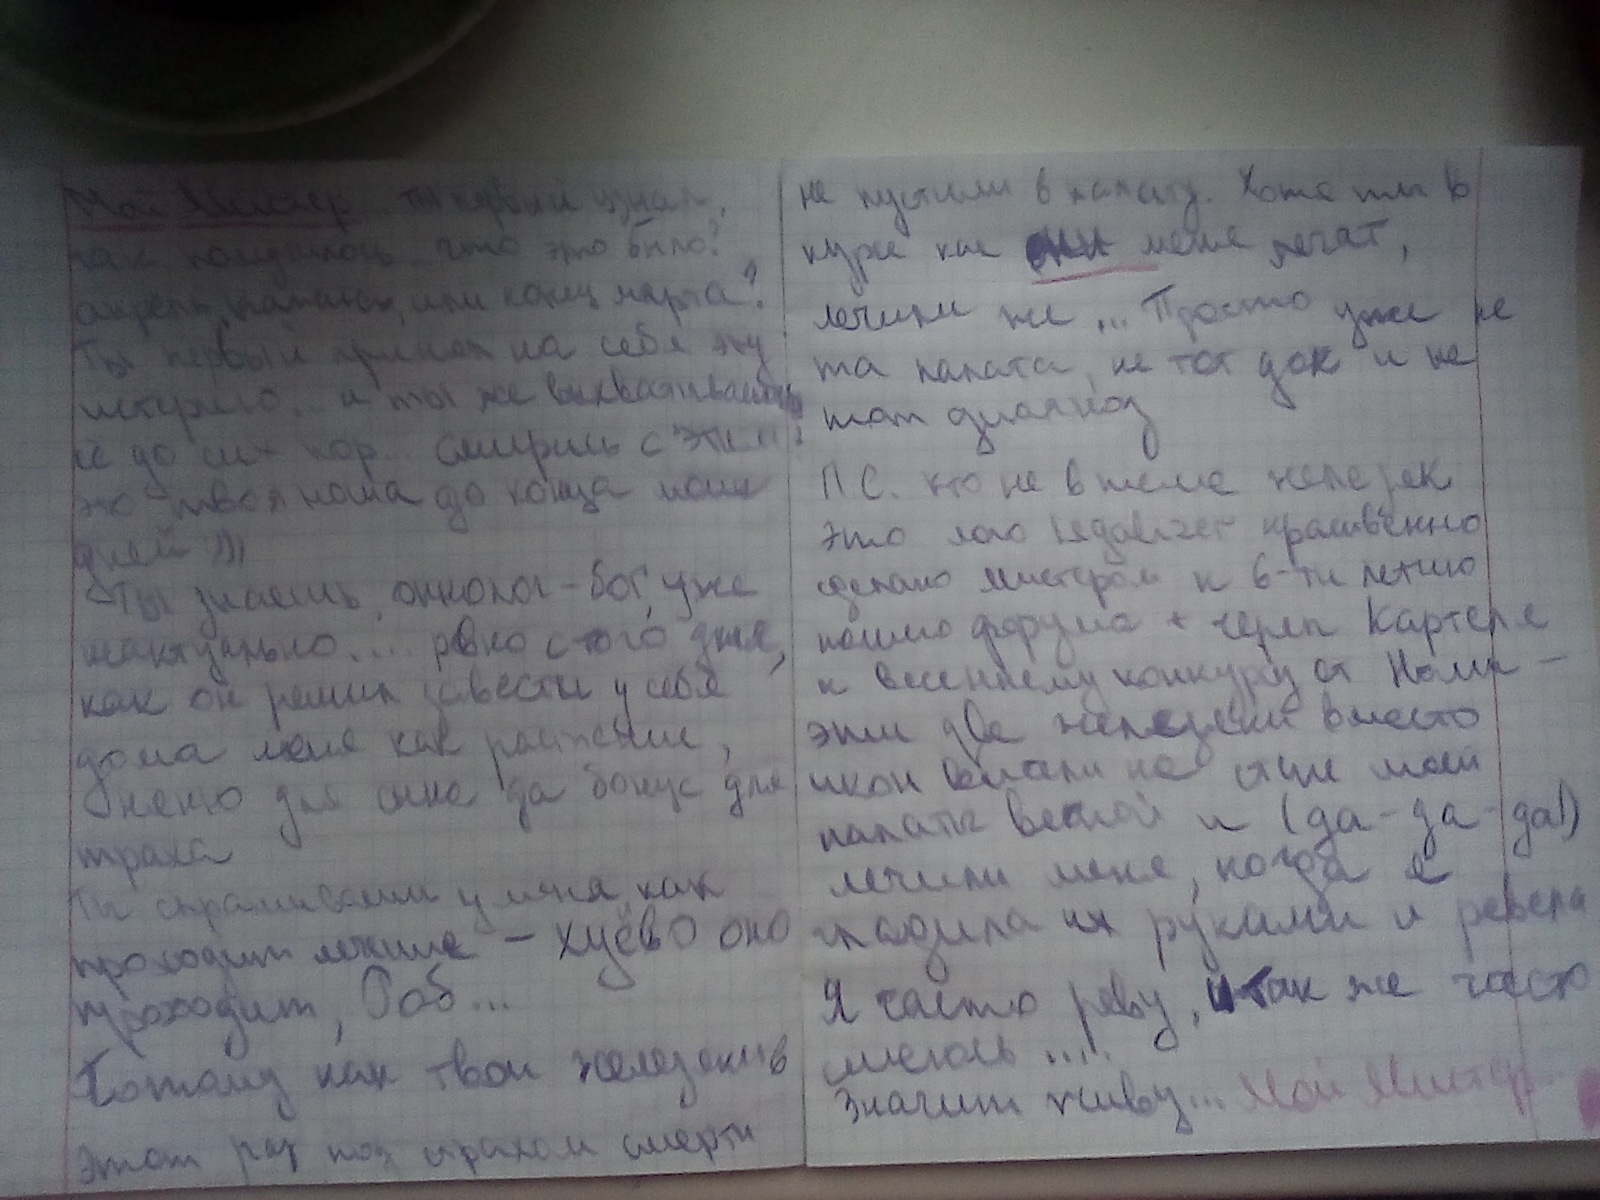 Мой Мистер ты первый узнал,
как получилось. что это было?
апрель, кажись, или конец марта?
Ты первый принял на себя эту
истерию.. и ты же выхватываешь
её до сих пор.. смирись с этим!
это твоя ноша до конца моих
дней )))
Ты знаешь, онколог-бог, уже
неактуально... ровно с того дня,
как он решил завести у себя
дома меня как растение,
няню для сына да бонус для
траха
Ты спрашиваешь у меня, как
проходит лечение - хуёво оно
проходит, Роб...
Потому как твои железяки в
этот раз под страхом смерти
не пустили в палату. Хотя ты в
курсе как они меня лечат,
лечили же ... Просто уже не
та палата, не тот док и не
тот диагноз
П.С. кто не в теме железяк
это лого собственно
сделано Мистером к 6-ти летию
нашего форума + череп Картеля
к весеннему конкурсу от Номи -
эти две железяки вместо
икон висели на стене моей
палаты весной и (да-да-да!)
лечили меня, когда я
гладила их руками и ревела
Я часто реву, и так же часто
смеюсь .....
Значит живу... Мой Мистер..